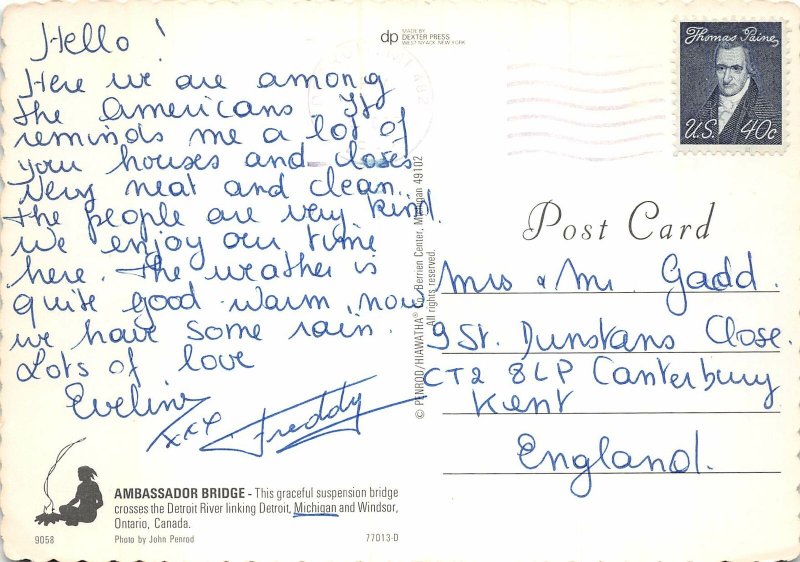 Hello!
Here we are among
the Americans. It
reminds me a lot of
you houses and closes
very neat and clean.
the people are very kind.
We enjoy our time
here. The weather is
quite good warm, now
we have some rain.
Lots of love
Eveline
xxx Freddy
AMBASSADOR BRIDGE - This graceful suspension bridge
crosses the Detroit River linking Detroit, Michigan and Windsor,
Ontario, Canada.
9058
Photo by John Penrod
77013-D
dp
MADE BY
DEXTER PRESS
WEST NYACK, NEW YORK
© PENROD/HIAWATHA® Co. Berrien Center, Michigan 49102
All rights reserved.
Thomas Paine
U.S. 40c
Post Card
Mrs & Mr. Gadd.
9 St. Dunstans Close.
CT2 8LP Canterbury
Kent
England.